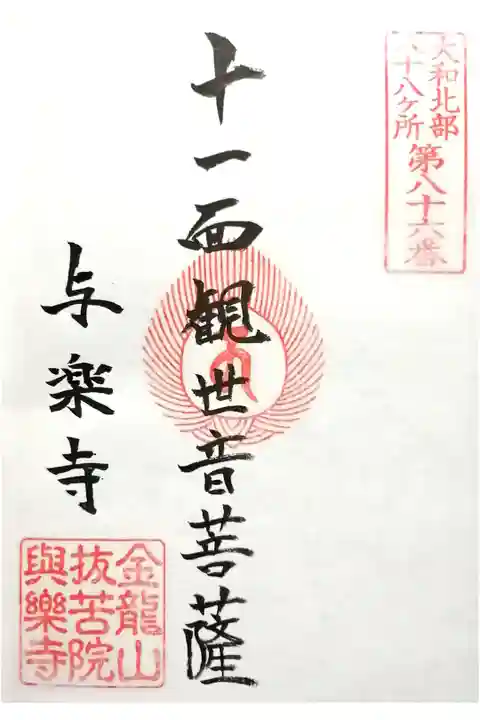 大和北部
八十八ヶ所
第八十六番
十一面観世音菩薩
与楽寺
金龍山
抜苦院
與樂寺